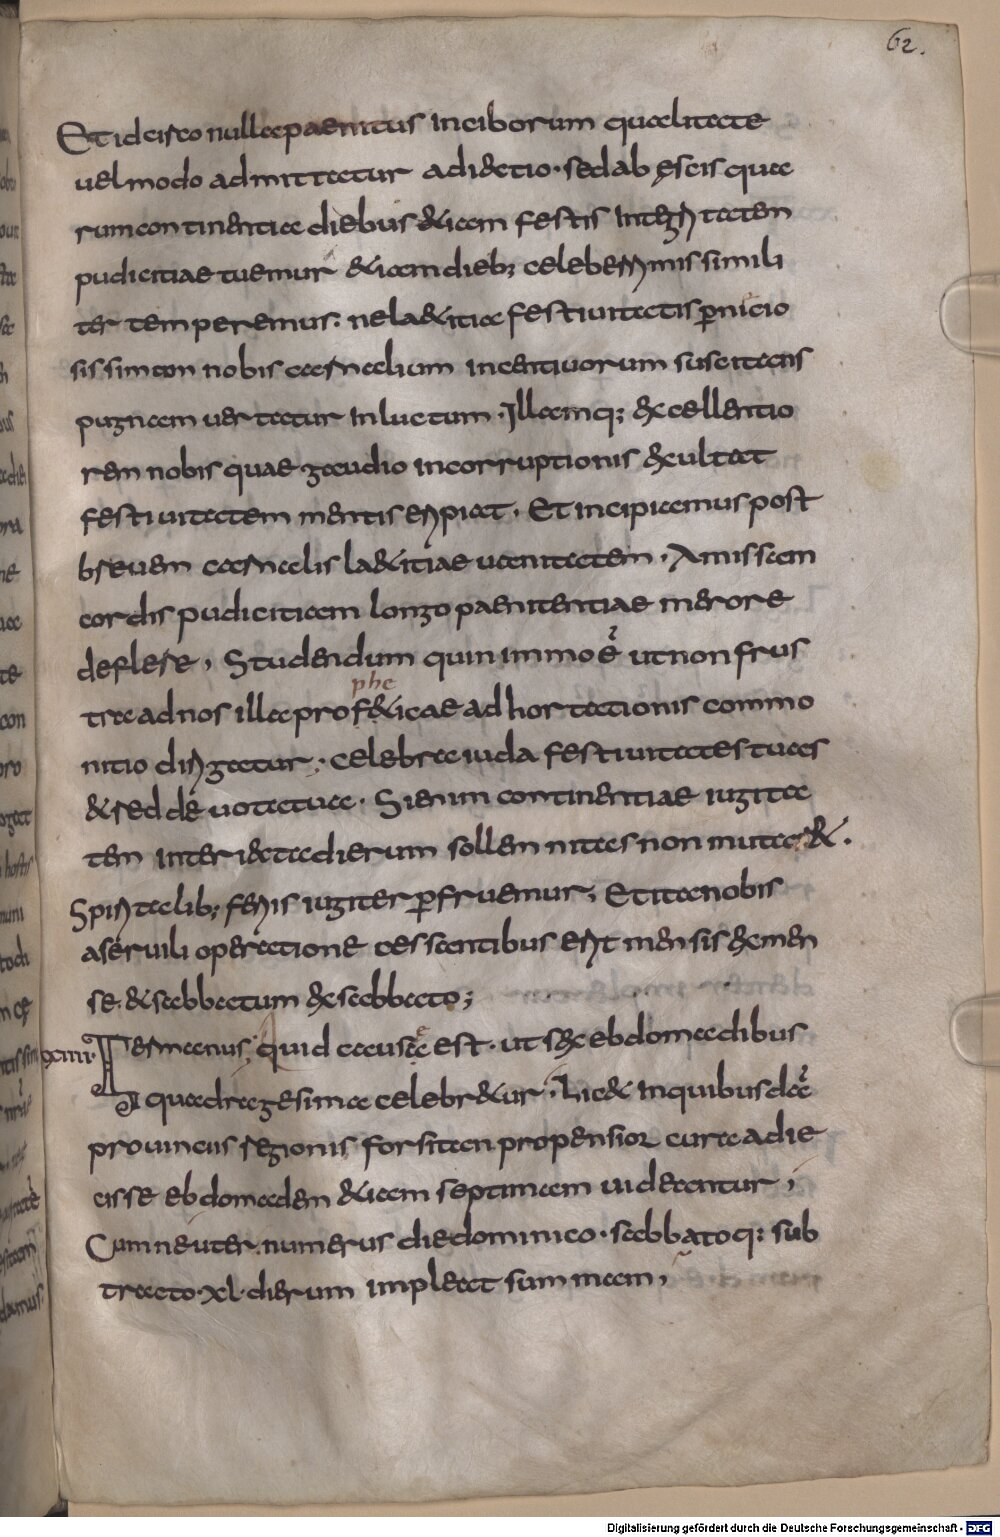 62.
Et idcirco nulla paenitus in ciborum qualitate
uel modo admittatur adiectio · sed ab escis qua
rum continentiae diebus etiam festis integritatem
pudicitiae tuemur etiam dieb; celeberrimis simili
ter temperemus · ne laetitia festiuitatis pernicio
sissimam nobis carnalium incentiuorum suscitans
pugnam uertatur in luctum · Illamq; excellentio
rem nobis quae gaudio incorruptionis exultat
festiuitatem mentis eripiat · Et incipiamus post
breuem carnalis laetitiae uanitatem · Amissam
cordis pudicitiam longo paenitentiae merore
deflere , Studendum quin immo ē ut non frus
phe
tra ad nos illa profeticae adhortationis commo
nitio dirigatur · celebra iuda festiuitates tuas
et redde uota tua · Si enim continentiae iugita
tem interiecta dierum sollemnitas non mutaret ·
Spiritalib; feriis iugiter perfruemur , Et ita nobis
a seruili operatione cessantibus erit mensis ex men
se et sabbatum ex sabbato ;
xciiii · Germanus · quid causae est · ut sex ebdomadibus
quadragesima celebretur · Licet in quibusdā
prouinciis regionis forsitan propensior cura adie
cisse ebdomadem etiam septimam uideantur ,
Cum neuter numerus die dominico · sabbatoq; sub
tracto · xl · dierum impleat summam ,
Digitalisierung gefördert durch die Deutsche Forschungsgemeinschaft - DFG